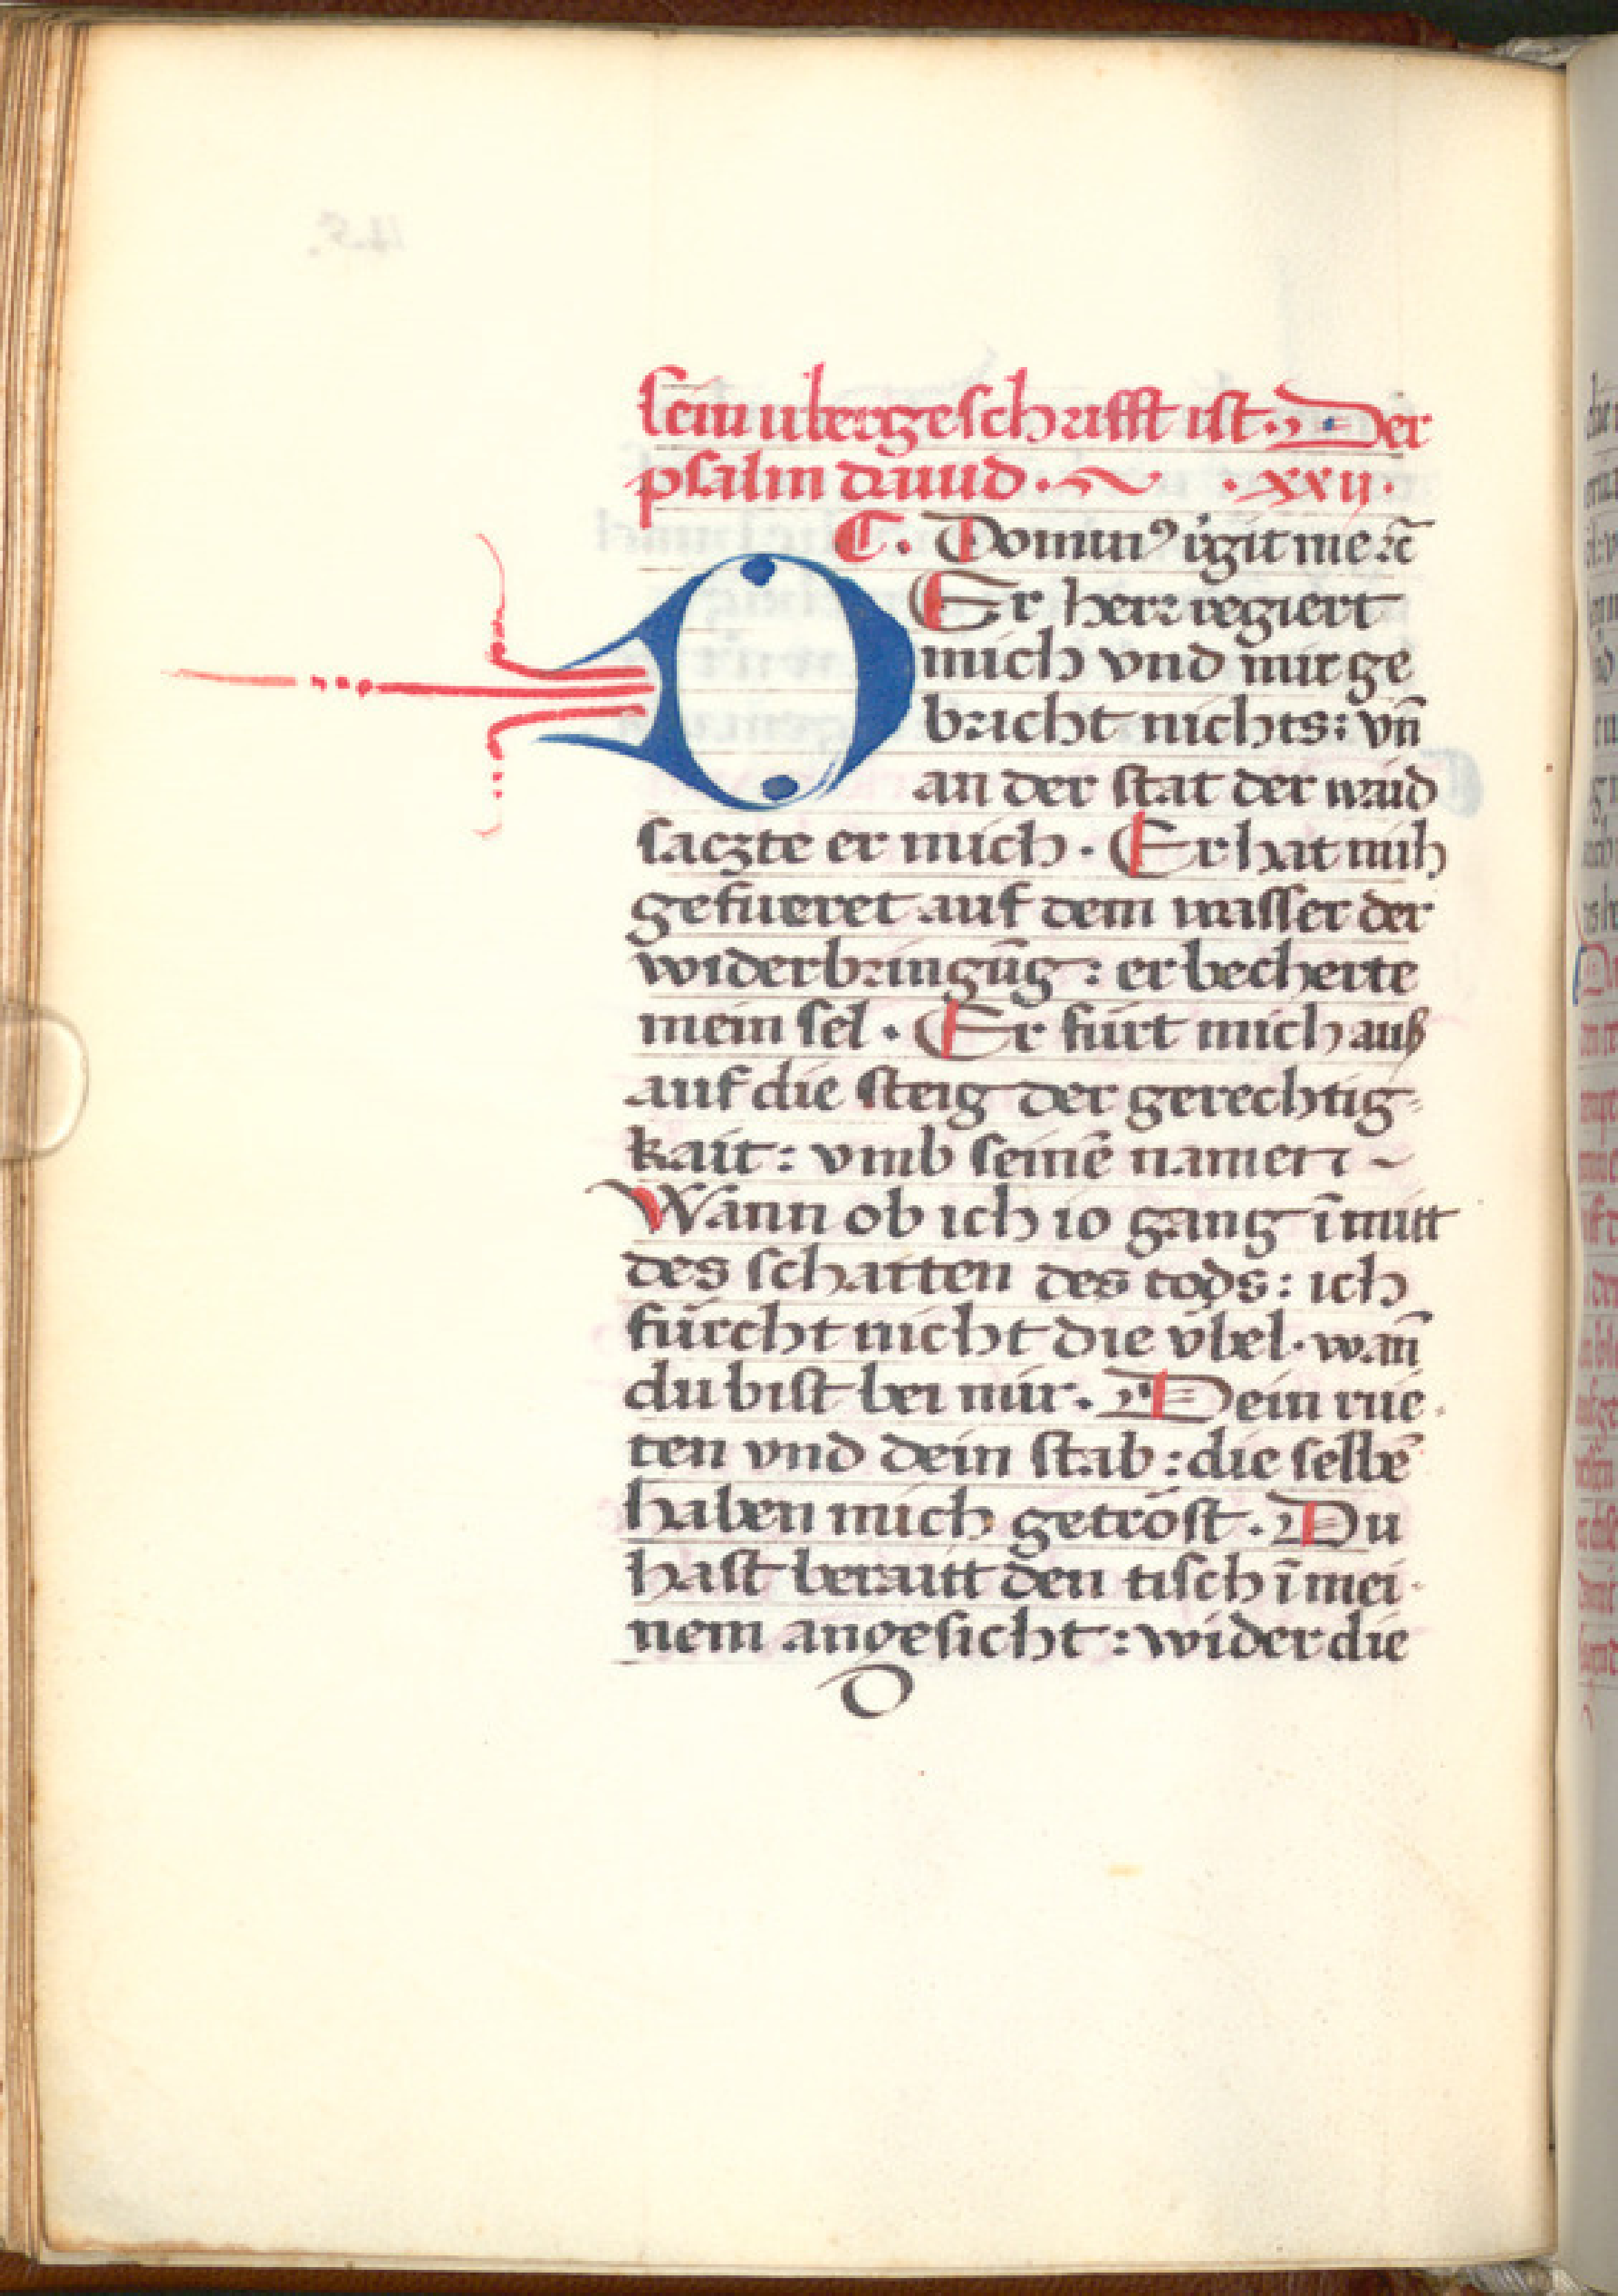 sein ubergeschrifft ist. Der
psalm dauid. .xxij.
C. Dominꝰ r̉git me ⁊c̃
DEr herr regiert
mich vnd mir ge
bricht nichts: vñ
an der stat der waid
saczte er mich. Er hat mih
gefueret auf dem wasser der
widerbringũg: er becherte
mein sel. Er fürt mich auß
auf die steig der gerechtig
kait: vmb seinẽ namen ~
Wann ob ich io gang ĩmitt
des schatten des tods: ich
fürcht nicht die v̈bel. wañ
du bist bei mir. Dein rüe
ten vnd dein stab: die selbẽ
haben mich getröst. Du
hast beraitt den tisch ĩ mei
nem angesicht: wider die